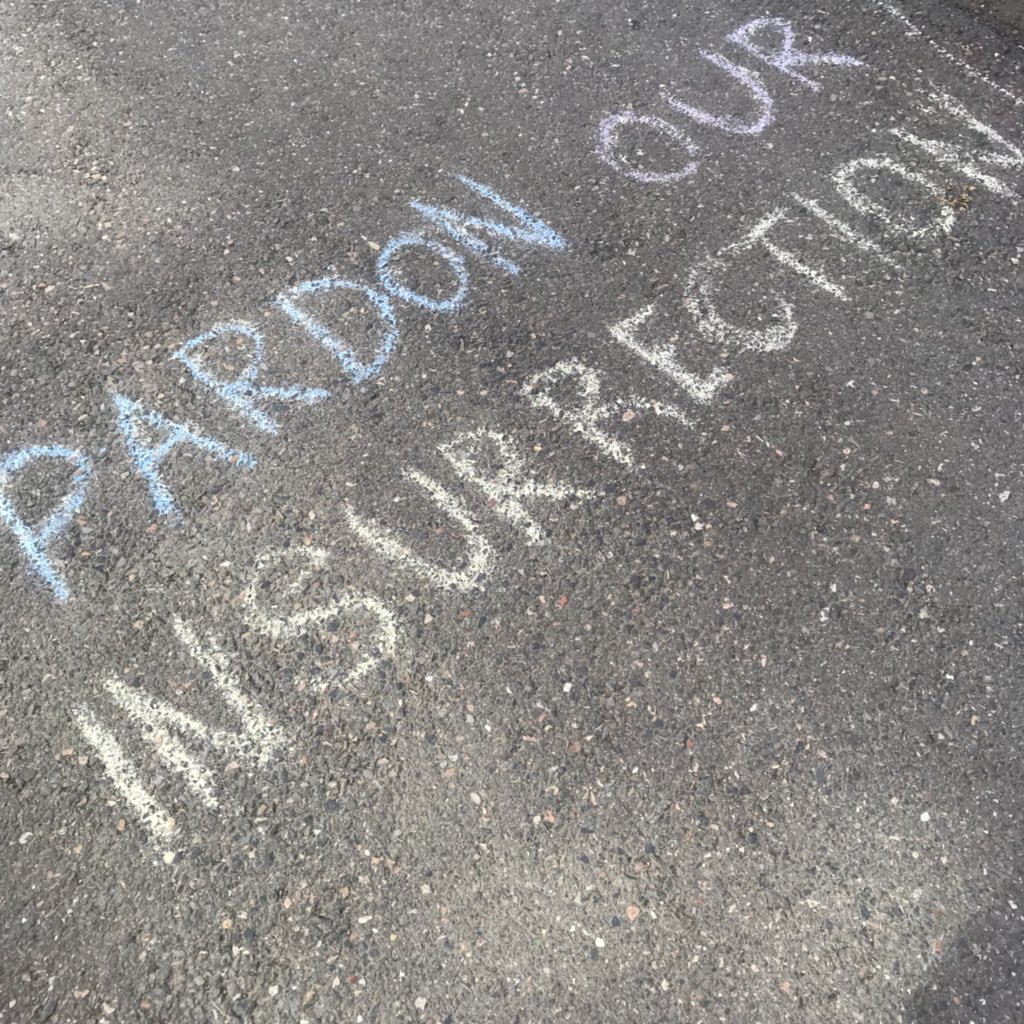 PARDON OUR
INSURRECTION